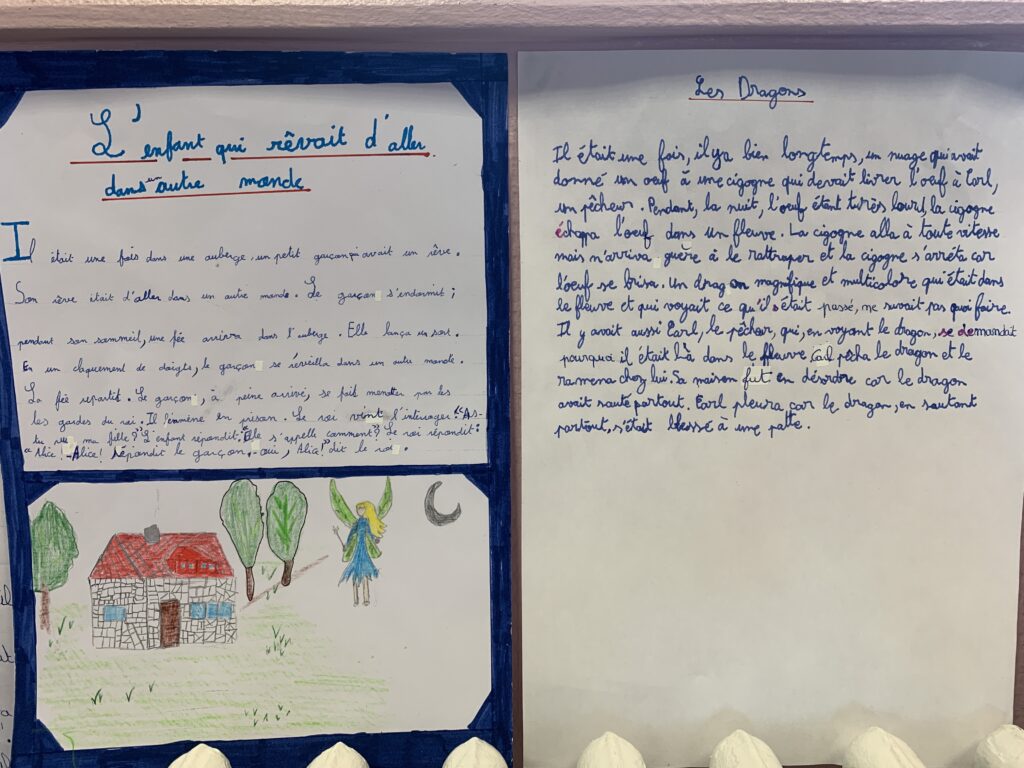 L'enfant qui rêvait d'aller
dans un autre monde
Il était une fois dans une auberge, un petit garçon qui avait un rêve.
Son rêve était d'aller dans un autre monde. Le garçon s'endormit ;
pendant son sommeil, une fée arriva dans l'auberge. Elle lança un sort.
En un claquement de doigts, le garçon se réveilla dans un autre monde.
La fée repartit. Le garçon, à peine arrivé, se fait menotter par les
les gardes du roi. Il l'emmène en prison. Le roi vint l'interroger : "As-
tu vu ma fille ?" L'enfant répondit : "Elle s'appelle comment ?" Le roi répondit :
"Alice ! - Alice ! Répondit le garçon. - oui, Alice !" dit le roi.
Les Dragons
Il était une fois, il y a bien longtemps, un nuage qui avait
donné un oeuf à une cigogne qui devait livrer l'oeuf à Earl,
un pêcheur. Pendant, la nuit, l'oeuf étant très lourd, la cigogne
échappa l'oeuf dans un fleuve. La cigogne alla à toute vitesse
mais n'arriva guère à le rattraper et la cigogne s'arrêta car
l'oeuf se brisa. Un dragon magnifique et multicolore qui était dans
le fleuve et qui voyait ce qu'il s'était passé, ne savait pas quoi faire.
Il y avait aussi Earl, le pêcheur, qui, en voyant le dragon, se demandait
pourquoi il était là dans le fleuve. Earl pêcha le dragon et le
ramena chez lui. Sa maison fut en désordre car le dragon
avait sauté partout. Earl pleura car le dragon, en sautant
partout, s'était blessé à une patte.